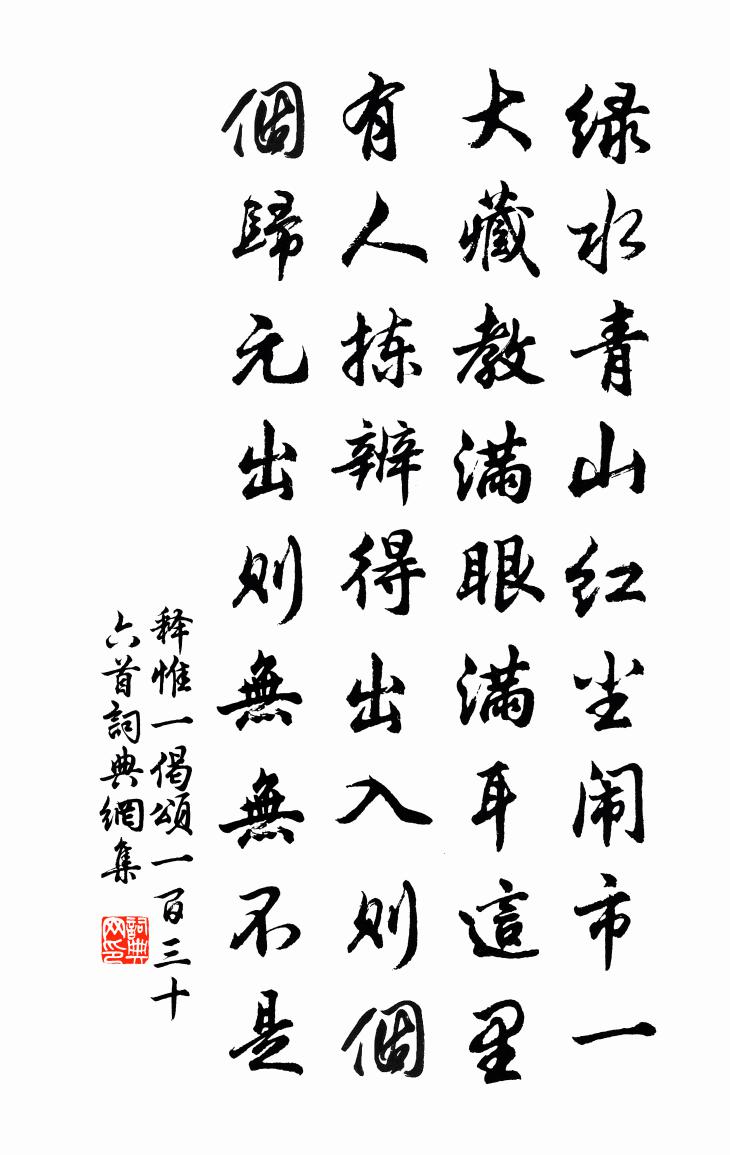 绿水青山红尘闹市一
大藏教满眼满耳這里
有人拣辨得出入则個
個歸元出则無無不是
释惟一偈颂一百三十
六首詞典網集
詞典网印